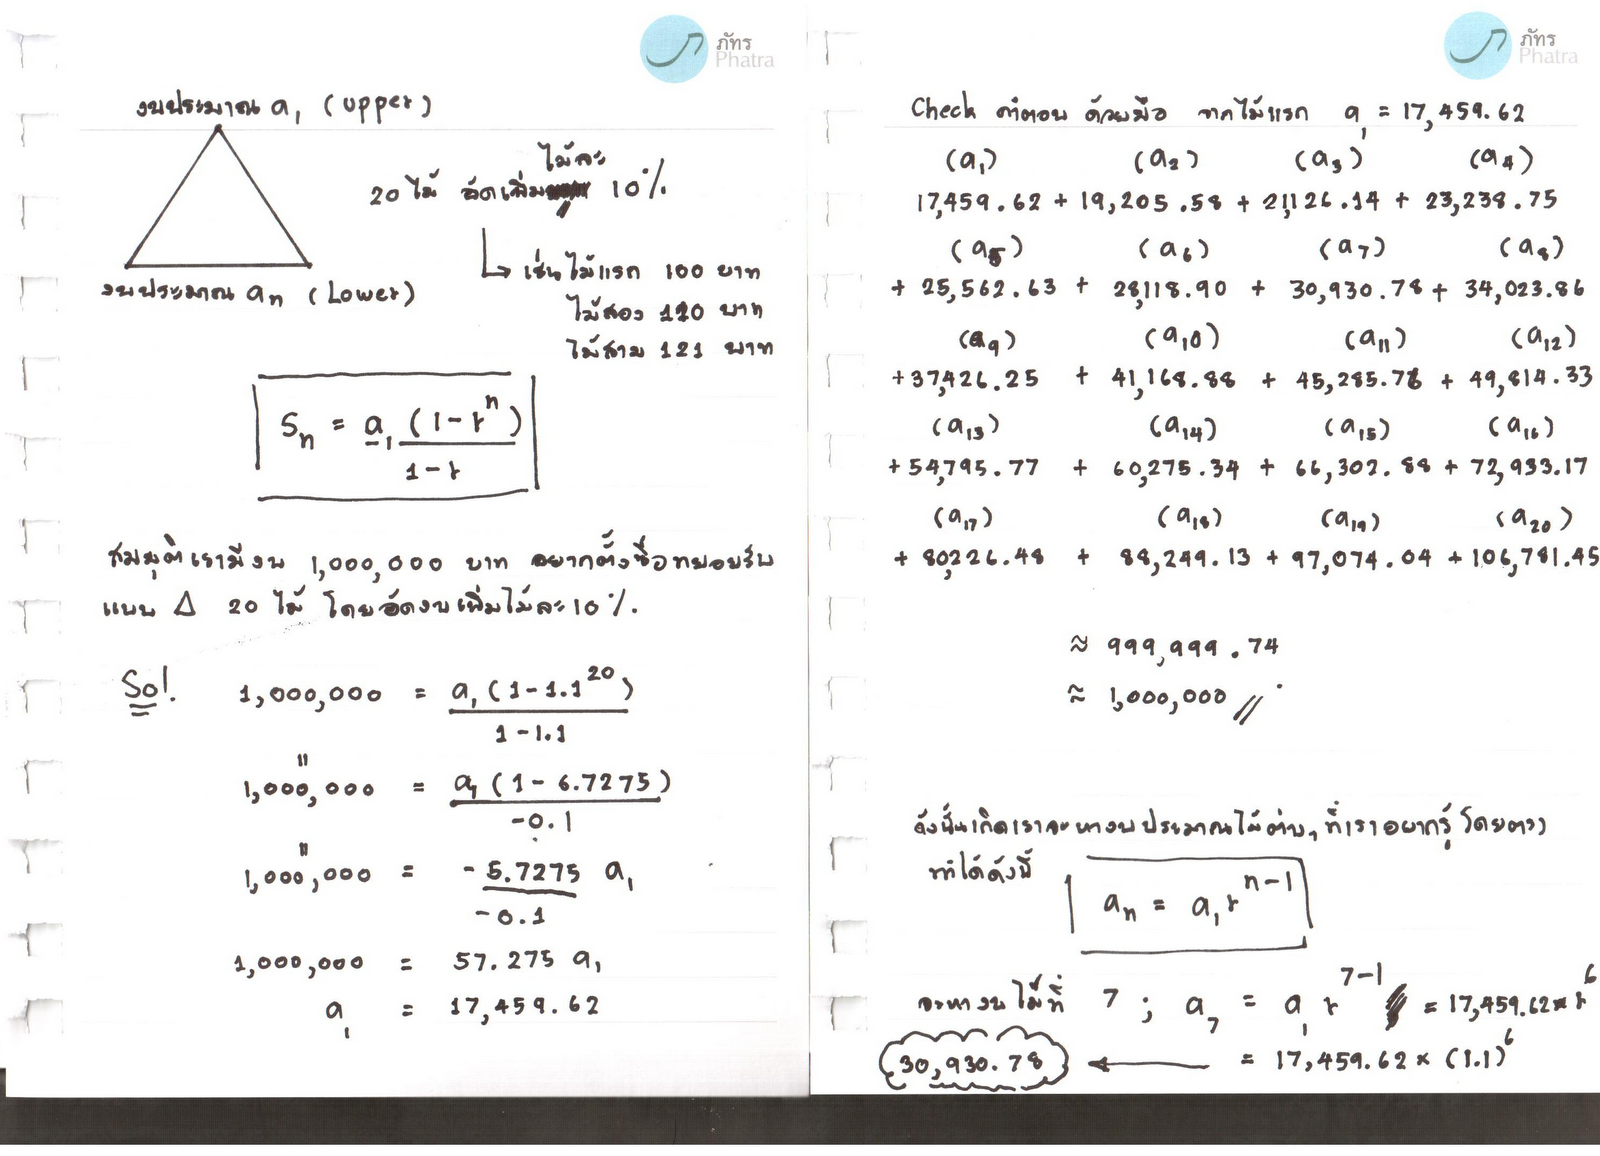 ภัทร
Phatra
งบประมาณ a₁ (upper)
ไม้ละ
20 ไม้ อัดเพิ่ม 10%
เช่นไม้แรก 100 บาท
งบประมาณ aₙ (Lower)
ไม้สอง 110 บาท
ไม้สาม 121 บาท
Sₙ = a₁ (1-rⁿ)
1-r
สมมุติเรามีงบ 1,000,000 บาท อยากตั้งซื้อทยอยรับ
แบบ Δ 20 ไม้ โดยอัดงบเพิ่มไม้ละ 10%.
Sol. 1,000,000 = a₁ (1-1.1²⁰)
1-1.1
1,000,000 = a₁ (1-6.7275)
-0.1
1,000,000 = -5.7275 a₁
-0.1
1,000,000 = 57.275 a₁
a₁ = 17,459.62
ภัทร
Phatra
Check คำตอบ ด้วยมือ จากไม้แรก a₁ = 17,459.62
(a₁) (a₂) (a₃) (a₄)
17,459.62 + 19,205.58 + 21,126.14 + 23,238.75
(a₅) (a₆) (a₇) (a₈)
+ 25,562.63 + 28,118.90 + 30,930.78 + 34,023.86
(a₉) (a₁₀) (a₁₁) (a₁₂)
+37,426.25 + 41,168.88 + 45,285.76 + 49,814.33
(a₁₃) (a₁₄) (a₁₅) (a₁₆)
+54,795.77 + 60,275.34 + 66,302.88 + 72,933.17
(a₁₇) (a₁₈) (a₁₉) (a₂₀)
+ 80,226.48 + 88,249.13 + 97,074.04 + 106,781.45
≈ 999,999.74
≈ 1,000,000 //
ดังนั้นเกิดเราจะหางบประมาณไม้ต่างๆ ที่เราอยากรู้ โดยตรง
ทำได้ดังนี้
aₙ = a₁rⁿ⁻¹
จะหางบไม้ที่ 7 ; a₇ = a₁r⁷⁻¹ = 17,459.62 × r⁶
30,930.78 ← = 17,459.62 × (1.1)⁶